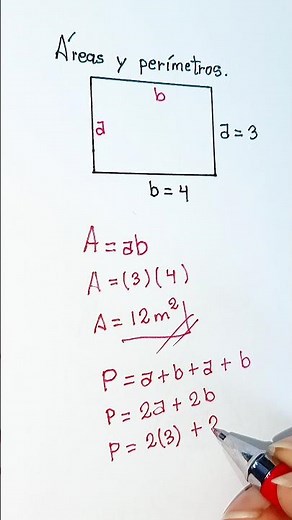 Áreas y perímetros.
b
a
a = 3
b = 4
A = ab
A = (3)(4)
A = 12m²
P = a + b + a + b
P = 2a + 2b
P = 2(3) + 2